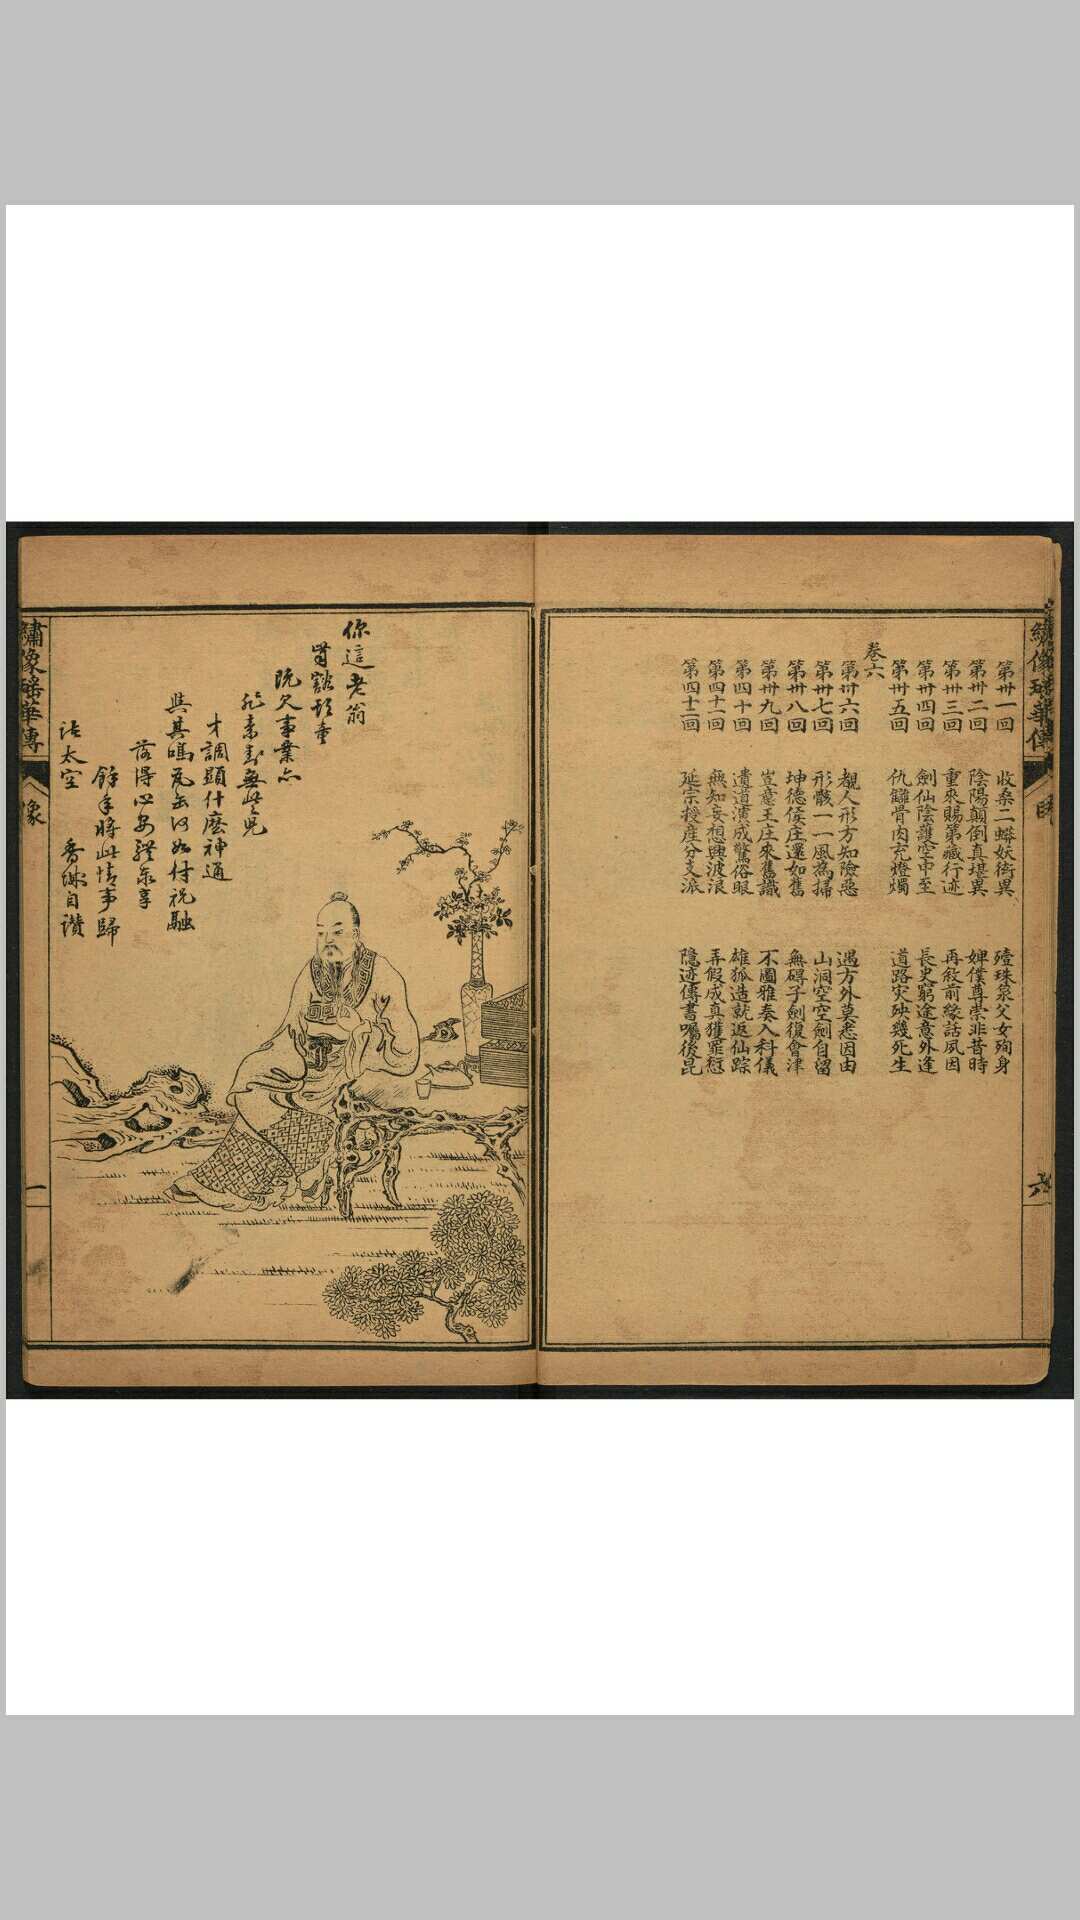 繡像瑤華傳
六
第卅一回 收桑二蟒妖術異 殪珠泉父女殉身
第卅二回 陰陽顛倒真堪異 婢僕尊崇非昔時
第卅三回 重來賜第藏行迹 再敘前緣話夙因
第卅四回 劍仙陰護空中至 長史窮途意外逢
第卅五回 仇讎骨肉充燈燭 道路灾殃幾死生
卷六
第卅六回 覩人形方知險惡 遇方外莫悉因由
第卅七回 形骸一一風為掃 山洞空空劍自留
第卅八回 坤德侯庄還如舊 無碍子劍復會津
第卅九回 豈意王庄來舊識 不圖雅奏入科儀
第四十回 遺道演成驚俗眼 雄狐造就返仙踪
第四十一回 無知妄想興波浪 弄假成真獲罪愆
第四十二回 延宗授産分支派 隱迹傳書囑後昆
你這老翁
既欠事業
才調顯什麽神通
與其鳴瓦缶何如付祝融
落得心安
餘年將此情事歸
太空
自讚
繡像瑤華傳
像
一